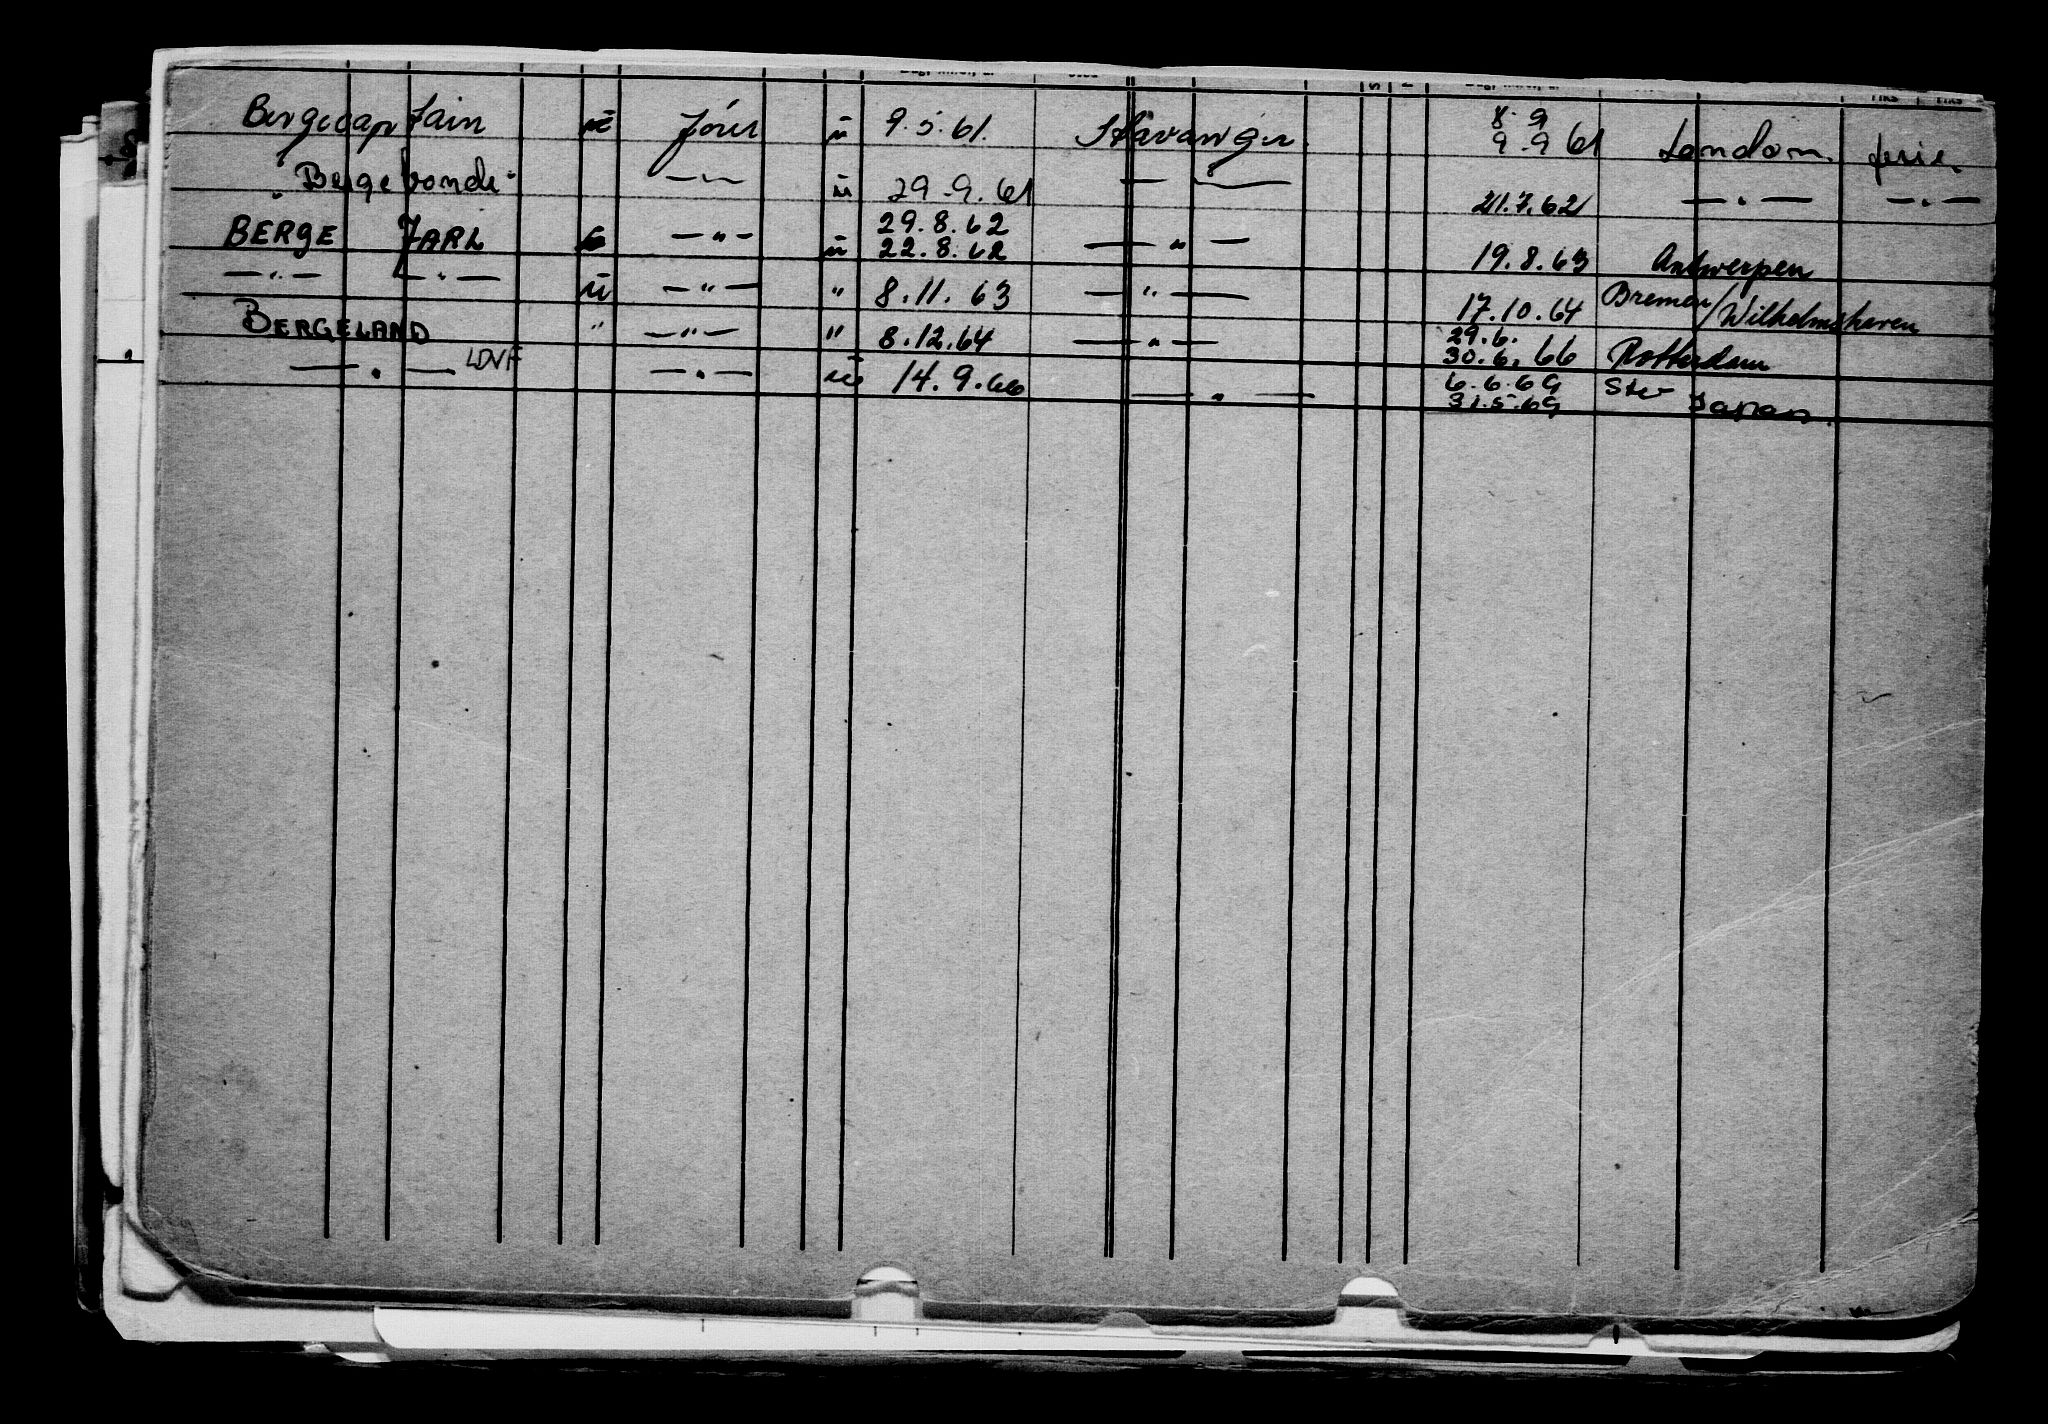 Bergecaptain ū Förel ū 9.5.61. Stavanger. 8.9 9.9 61 London. ferie.
" Bergebonde " — " — ū 29.9.61 — " — 21.7.62 — " — — " —
BERGE JARL — " — ū 29.8.62 22.8.62 — " — 19.8.63 Antwerpen
— " — — " — ū — " — " 8.11.63 — " — 17.10.64 Bremen/Wilhelmshaven
BERGELAND " — " — " 8.12.64 — " — 29.6. 30.6.66 Rotterdam
— " — LOVF — " — ū 14.9.66 — " — 6.6.69 31.5.69 Japan.